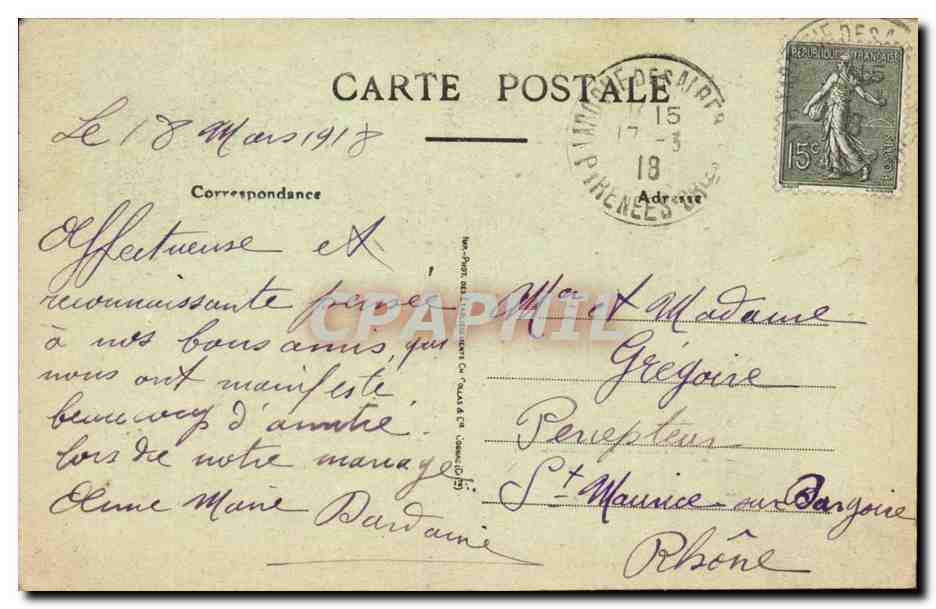 CARTE POSTALE
Le 18 Mars 1918
Correspondance
Affectueuse et
reconnaissante pensée
à nos bons amis, qui
nous ont manifesté
beaucoup d'amitié
lors de notre mariage.
Anne Marie Dardaine
IMP.-PHOT. DES ÉTABLISSEMENTS CH. COLLAS & Cie, COGNAC
15
17 -3
18
PYRENEES
REPUBLIQUE FRANÇAISE
15c
Adresse
Mr et Madame
Grégoire
Percepteur
St Maurice-sur Dargoire
Rhône
CPAPHIL